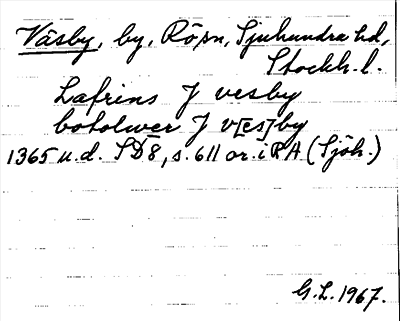 Väsby, by, Rö sn, Sjuhundra hd,
Stockh. l.
Lafrins J vesby
botolwer J v[es]by
1365 u.d. SD 8, s. 611 or. i RA (Sjöh.)
G.L. 1967.